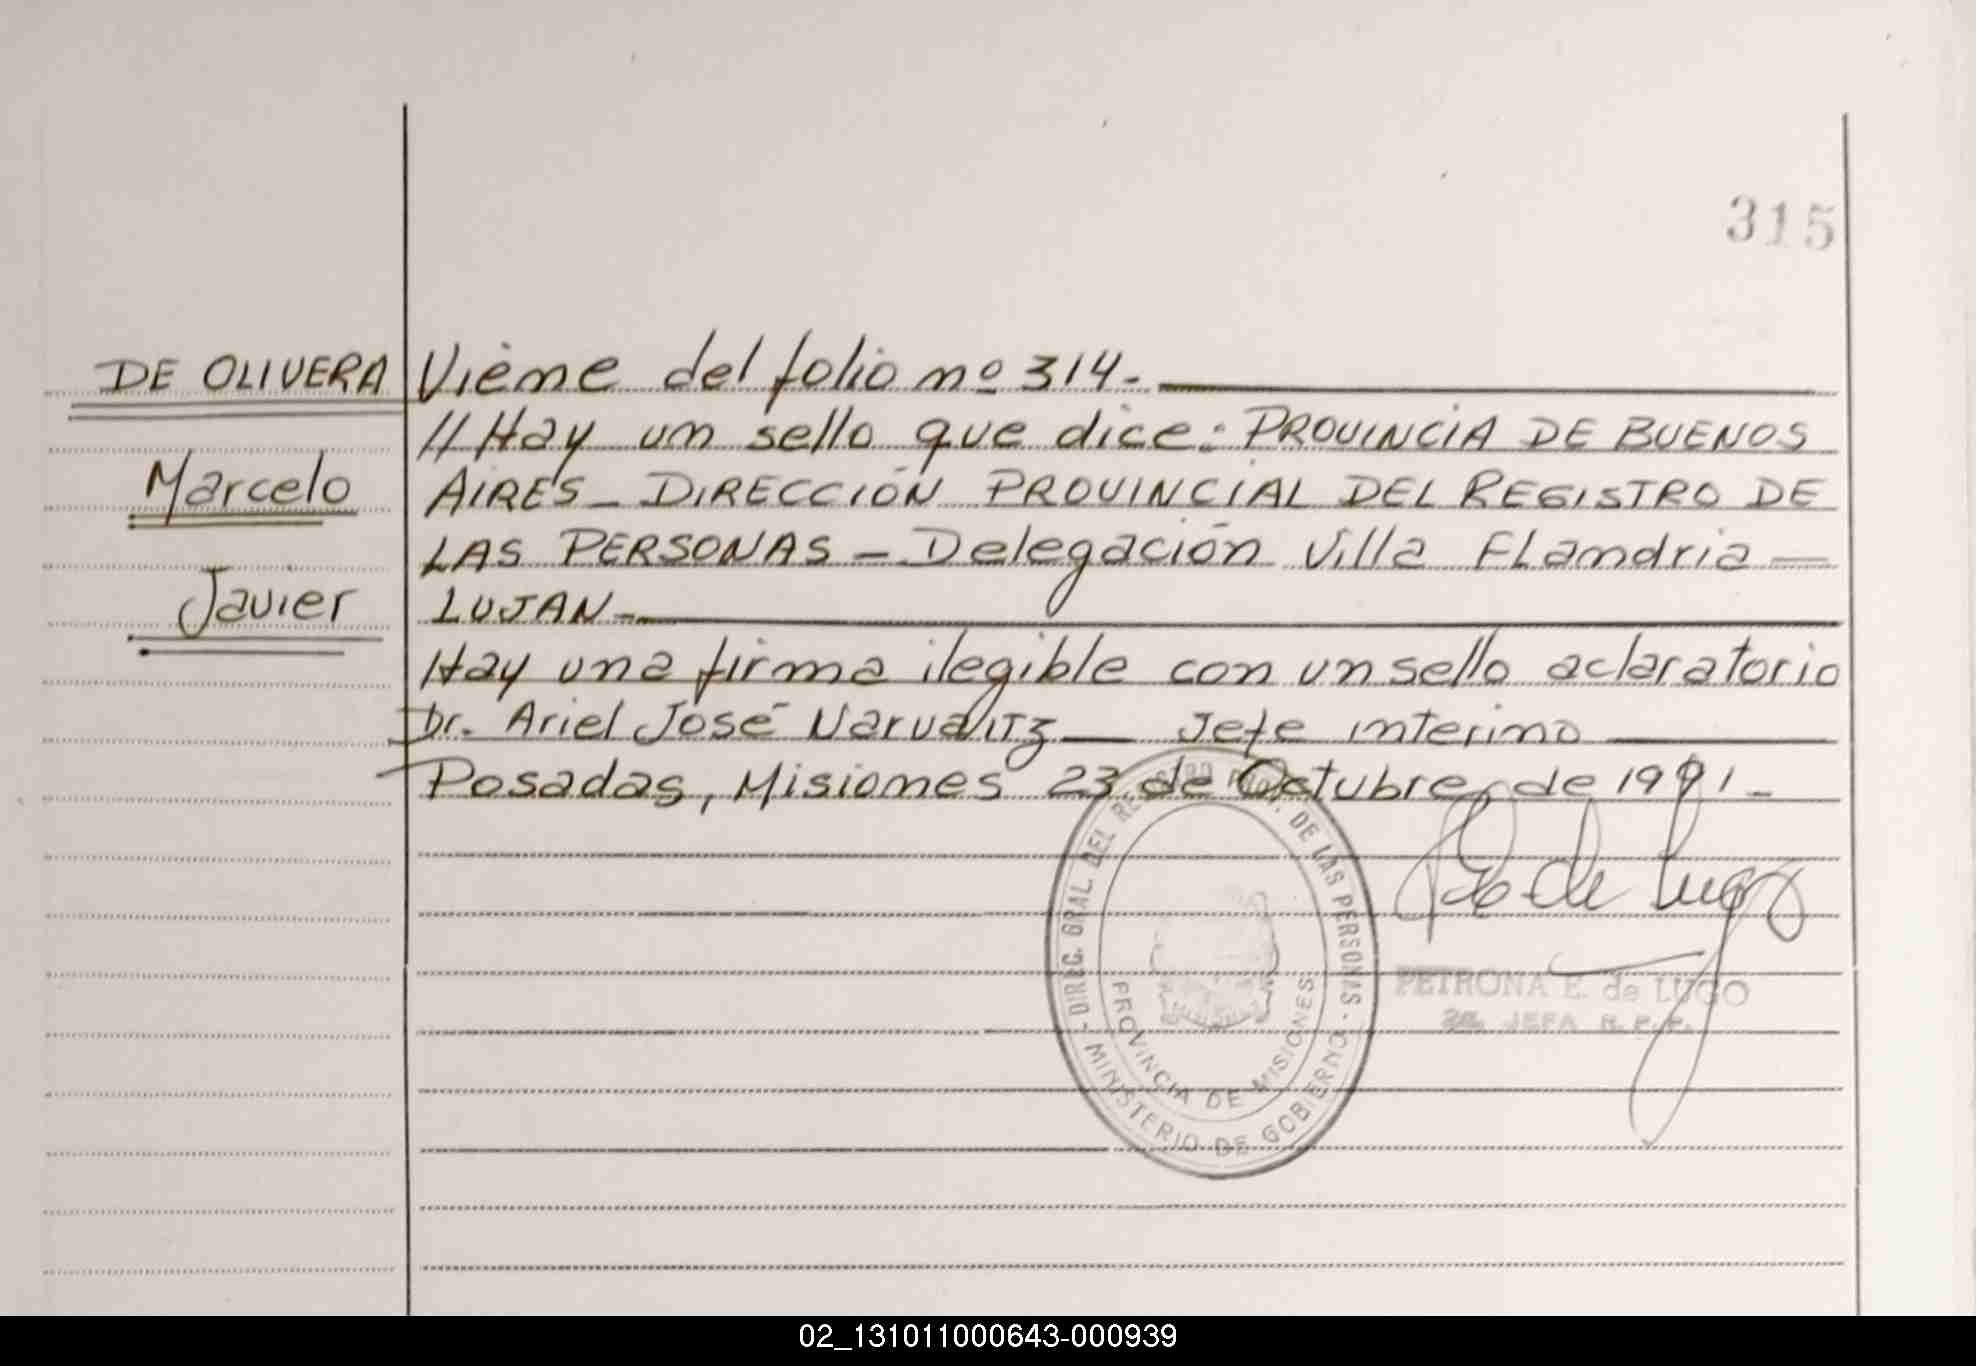 315
DE OLIVERA
Marcelo
Javier
Viene del folio nº 314.-
// Hay un sello que dice: PROVINCIA DE BUENOS
AIRES - DIRECCIÓN PROVINCIAL DEL REGISTRO DE
LAS PERSONAS - Delegación Villa FLandria -
LUJAN -
Hay una firma ilegible con un sello aclaratorio
Dr. Ariel José Narvaitz - Jefe interino
Posadas, Misiones 23 de Octubre de 1991 -
- DIREC. GRAL. DEL REGISTRO PROV. DE LAS PERSONAS -
MINISTERIO DE GOBIERNO
PROVINCIA DE MISIONES
de Lugo
PETRONA E. de LUGO
JEFA R. P. P.
02_131011000643-000939